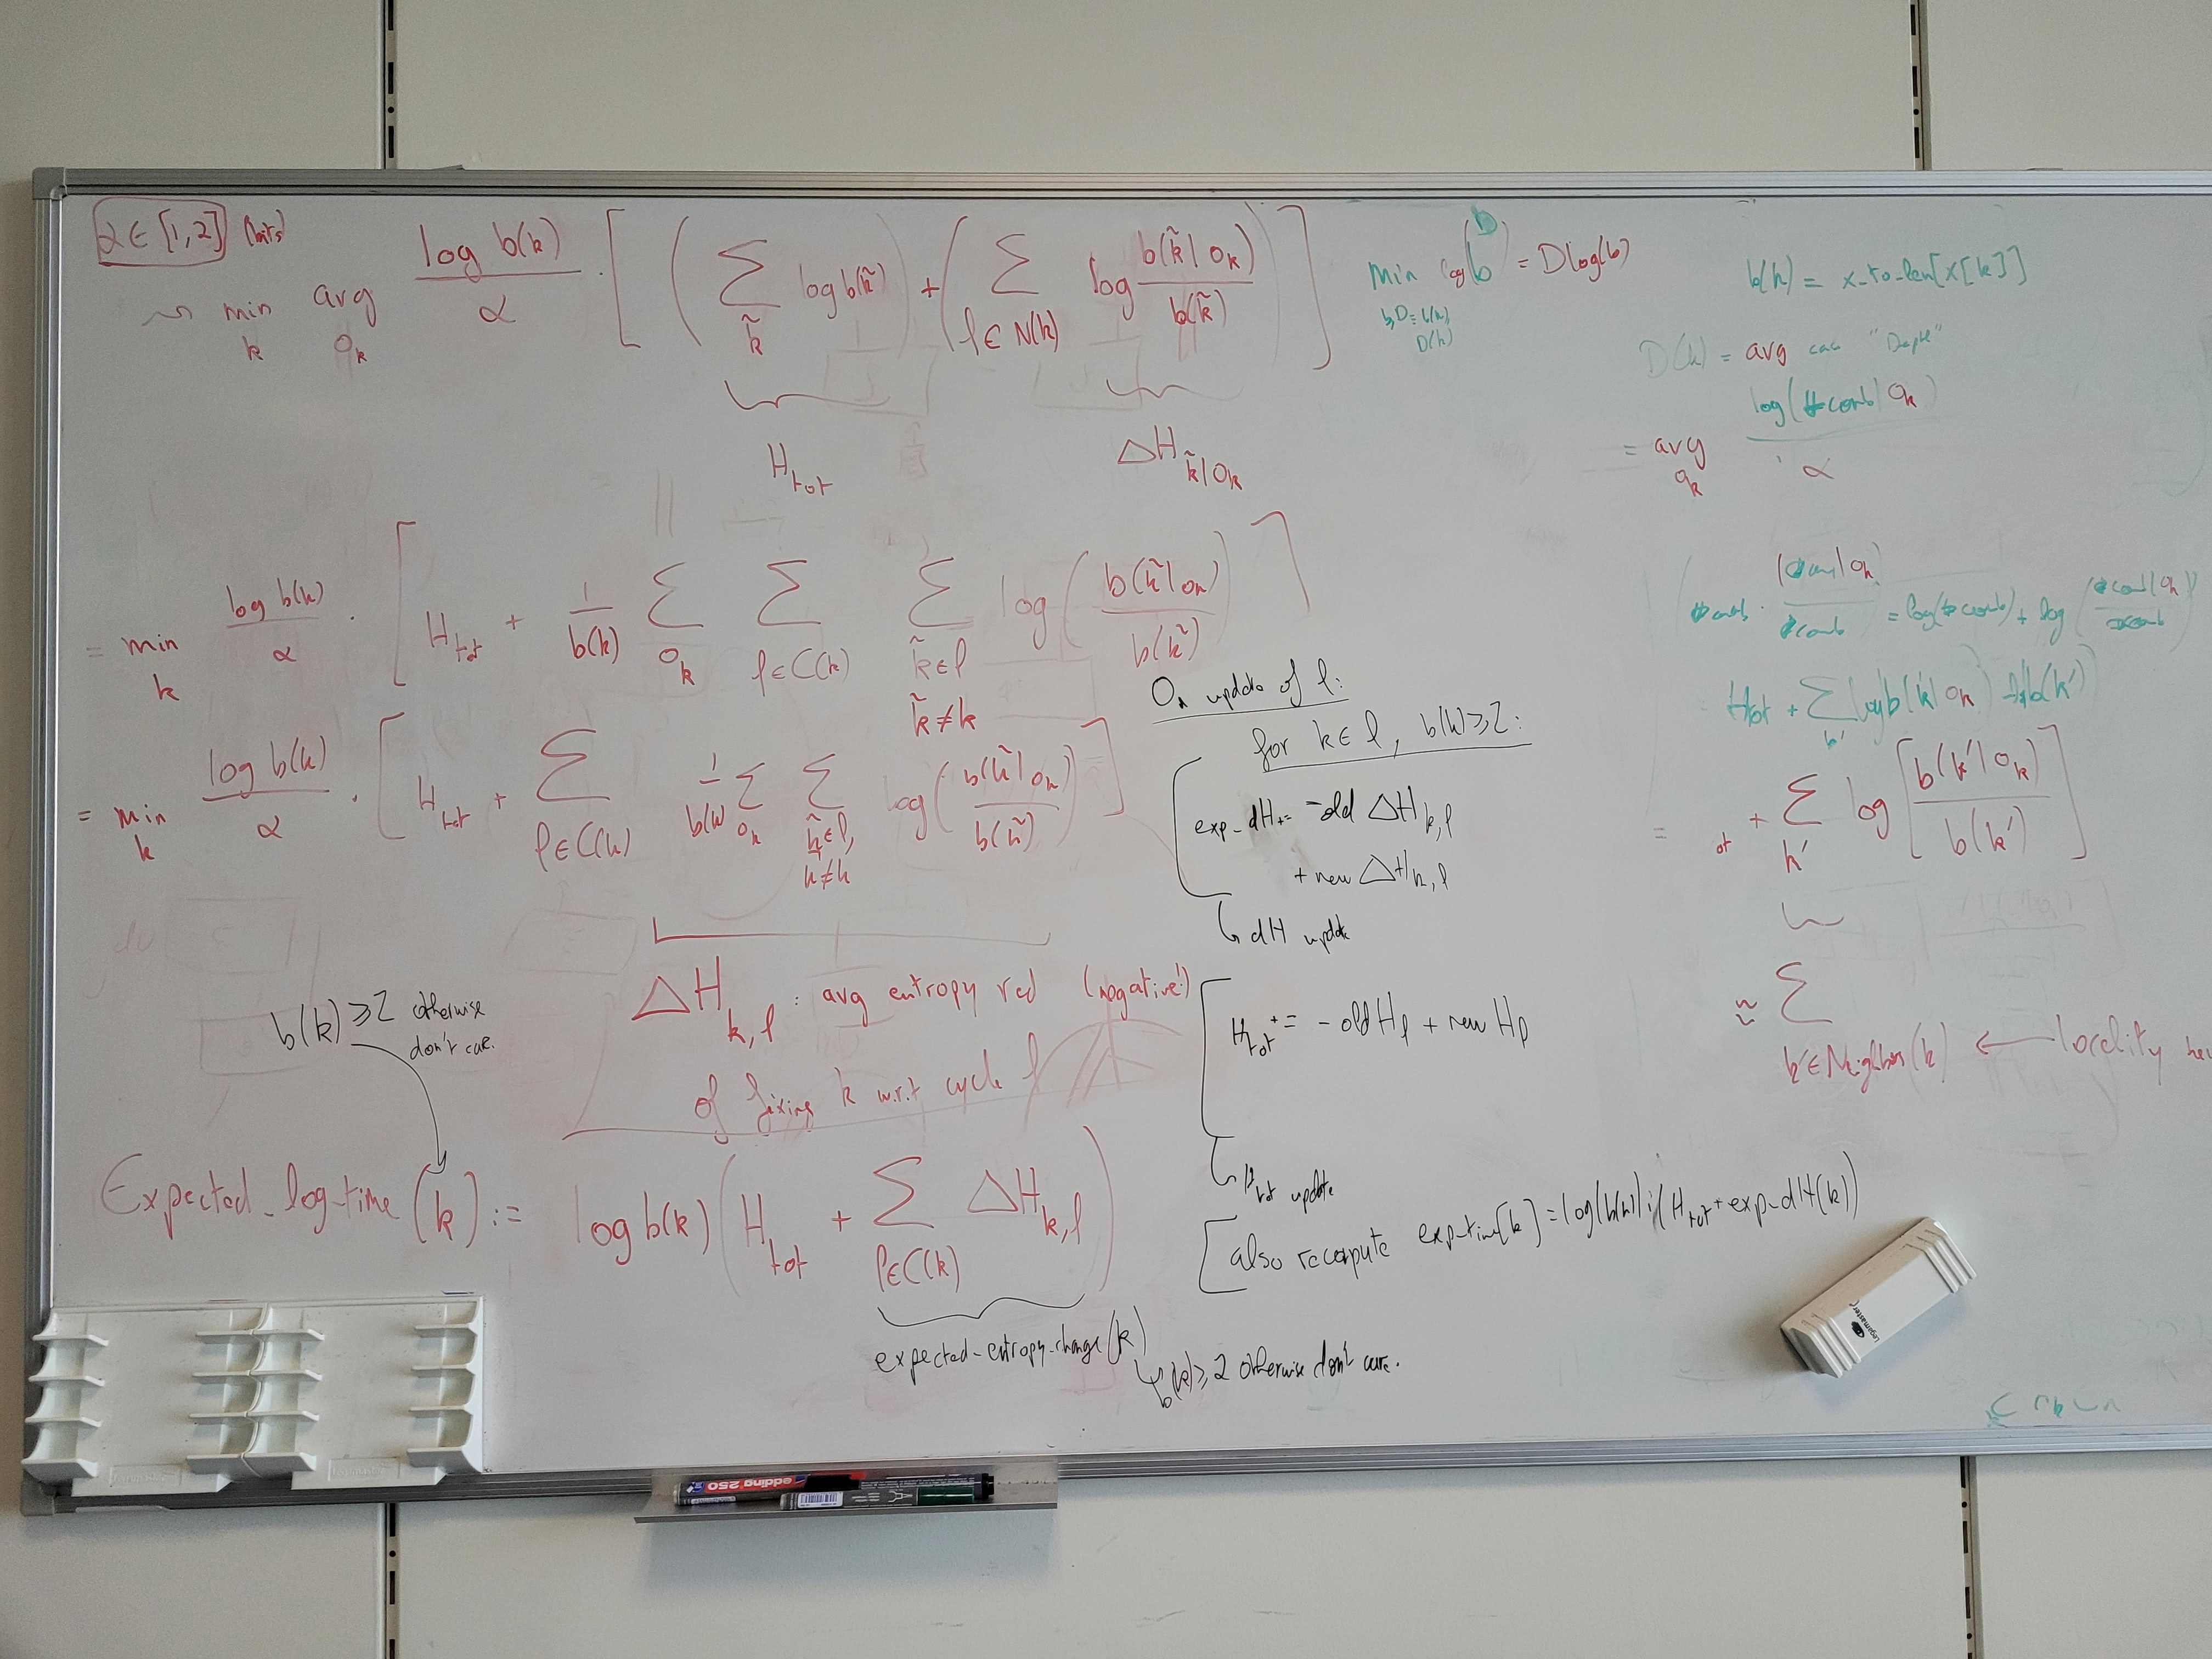 α ∈ [1,2] (bits)
min_k avg_{o_k} log b(k) / α · [ ( Σ_{k̃} log b(k̃) ) + ( Σ_{l ∈ N(k)} log b(k̃|o_k) / b(k̃) ) ]
H_tot
ΔH_{k̃|o_k}
= min_k log b(k) / α · [ H_tot + 1/b(k) Σ_{o_k} Σ_{l ∈ C(k)} Σ_{k̃ ∈ l, k̃ ≠ k} log( b(k̃|o_k) / b(k̃) ) ]
= min_k log b(k) / α · [ H_tot + Σ_{l ∈ C(k)} 1/b(k) Σ_{o_k} Σ_{k̃ ∈ l, k̃ ≠ k} log( b(k̃|o_k) / b(k̃) ) ]
ΔH_{k,l} : avg entropy red (negative!)
of fixing k w.r.t cycle l
b(k) ≥ 2 otherwise
don't care.
Expected_log-time (k) := log b(k) ( H_tot + Σ_{l ∈ C(k)} ΔH_{k,l} )
expected-entropy-change(k)
b(k) ≥ 2 otherwise don't care.
On update of l:
for k ∈ l, b(k) ≥ 2:
exp-dH += -old ΔH_{k,l}
+ new ΔH_{k,l}
dH update
H_tot += - old H_l + new H_l
H_tot update
also recompute exp-time[k] = log(b(k)) · (H_tot + exp-dH(k))
min log(b^D) = D log(b)
b,D = b(k), D(k)
b(k) = x-to-len[x[k]]
D(k) = avg "Depth"
= avg_{o_k} log(#comb|o_k) / α
#comb · (#comb|o_k) / #comb = log(#comb) + log( #comb|o_k / #comb )
= H_tot + Σ_{k'} log b(k'|o_k) - log b(k')
= ot + Σ_{k'} log [ b(k'|o_k) / b(k') ]
≈ Σ_{k' ∈ Neighbors(k)} ← locality
edding 250
Legamaster